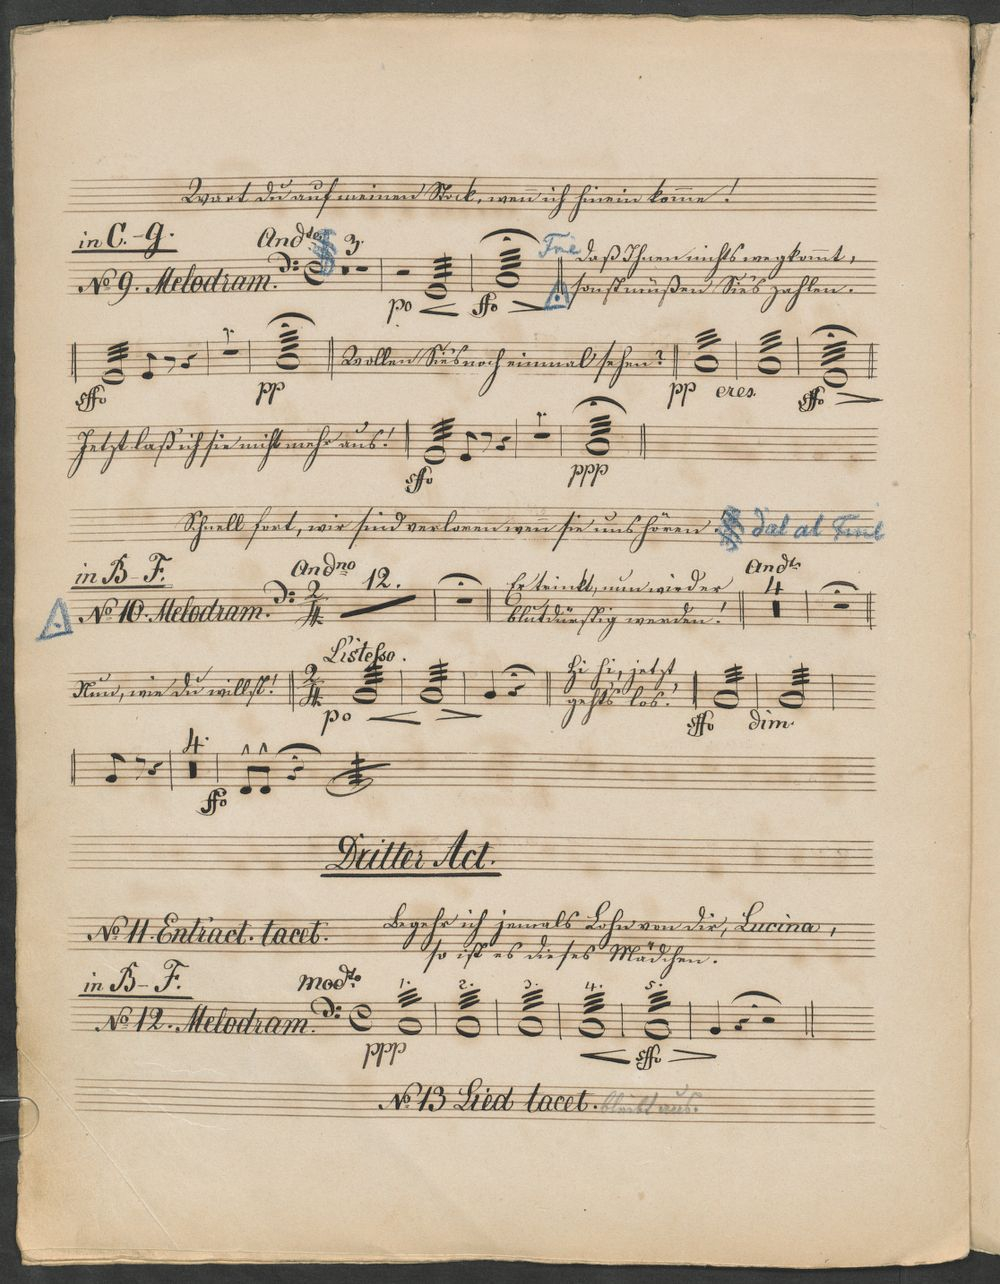 Wart du auf meinen Stock, wen̄ ich hinein kom̄e!
in C.-G. Andte 3. Fine Daß Ihnen nichts wegkom̄t,
No 9. Melodram. po ffo sonst müßen Sie's zahlen.
Wollen Sie's noch einmal sehen?
sffo pp pp cres. sffo
Jetzt laß ich sie nicht mehr aus!
sffo ppp
Schnell fort, wir sind verloren wen̄ sie uns hören. dal al Fine
in B-F. Andno 12. Er trinkt, nun wird er Andte 4
No 10. Melodram. 2/4 blutdürstig werden!
L'istesso. Hi hi, jetzt
Nun, wie du willst! 2/4 geht's los!
po sffo dim.
4.
ffo
Dritter Act.
No 11. Entract. tacet. Begehr ich jemals Lohn von dir, Lucina,
so ist es dieses Mädchen.
in B-F. modto 1. 2. 3. 4. 5.
No 12. Melodram.
ppp sffo
No 13 Lied tacet. bleibt aus.